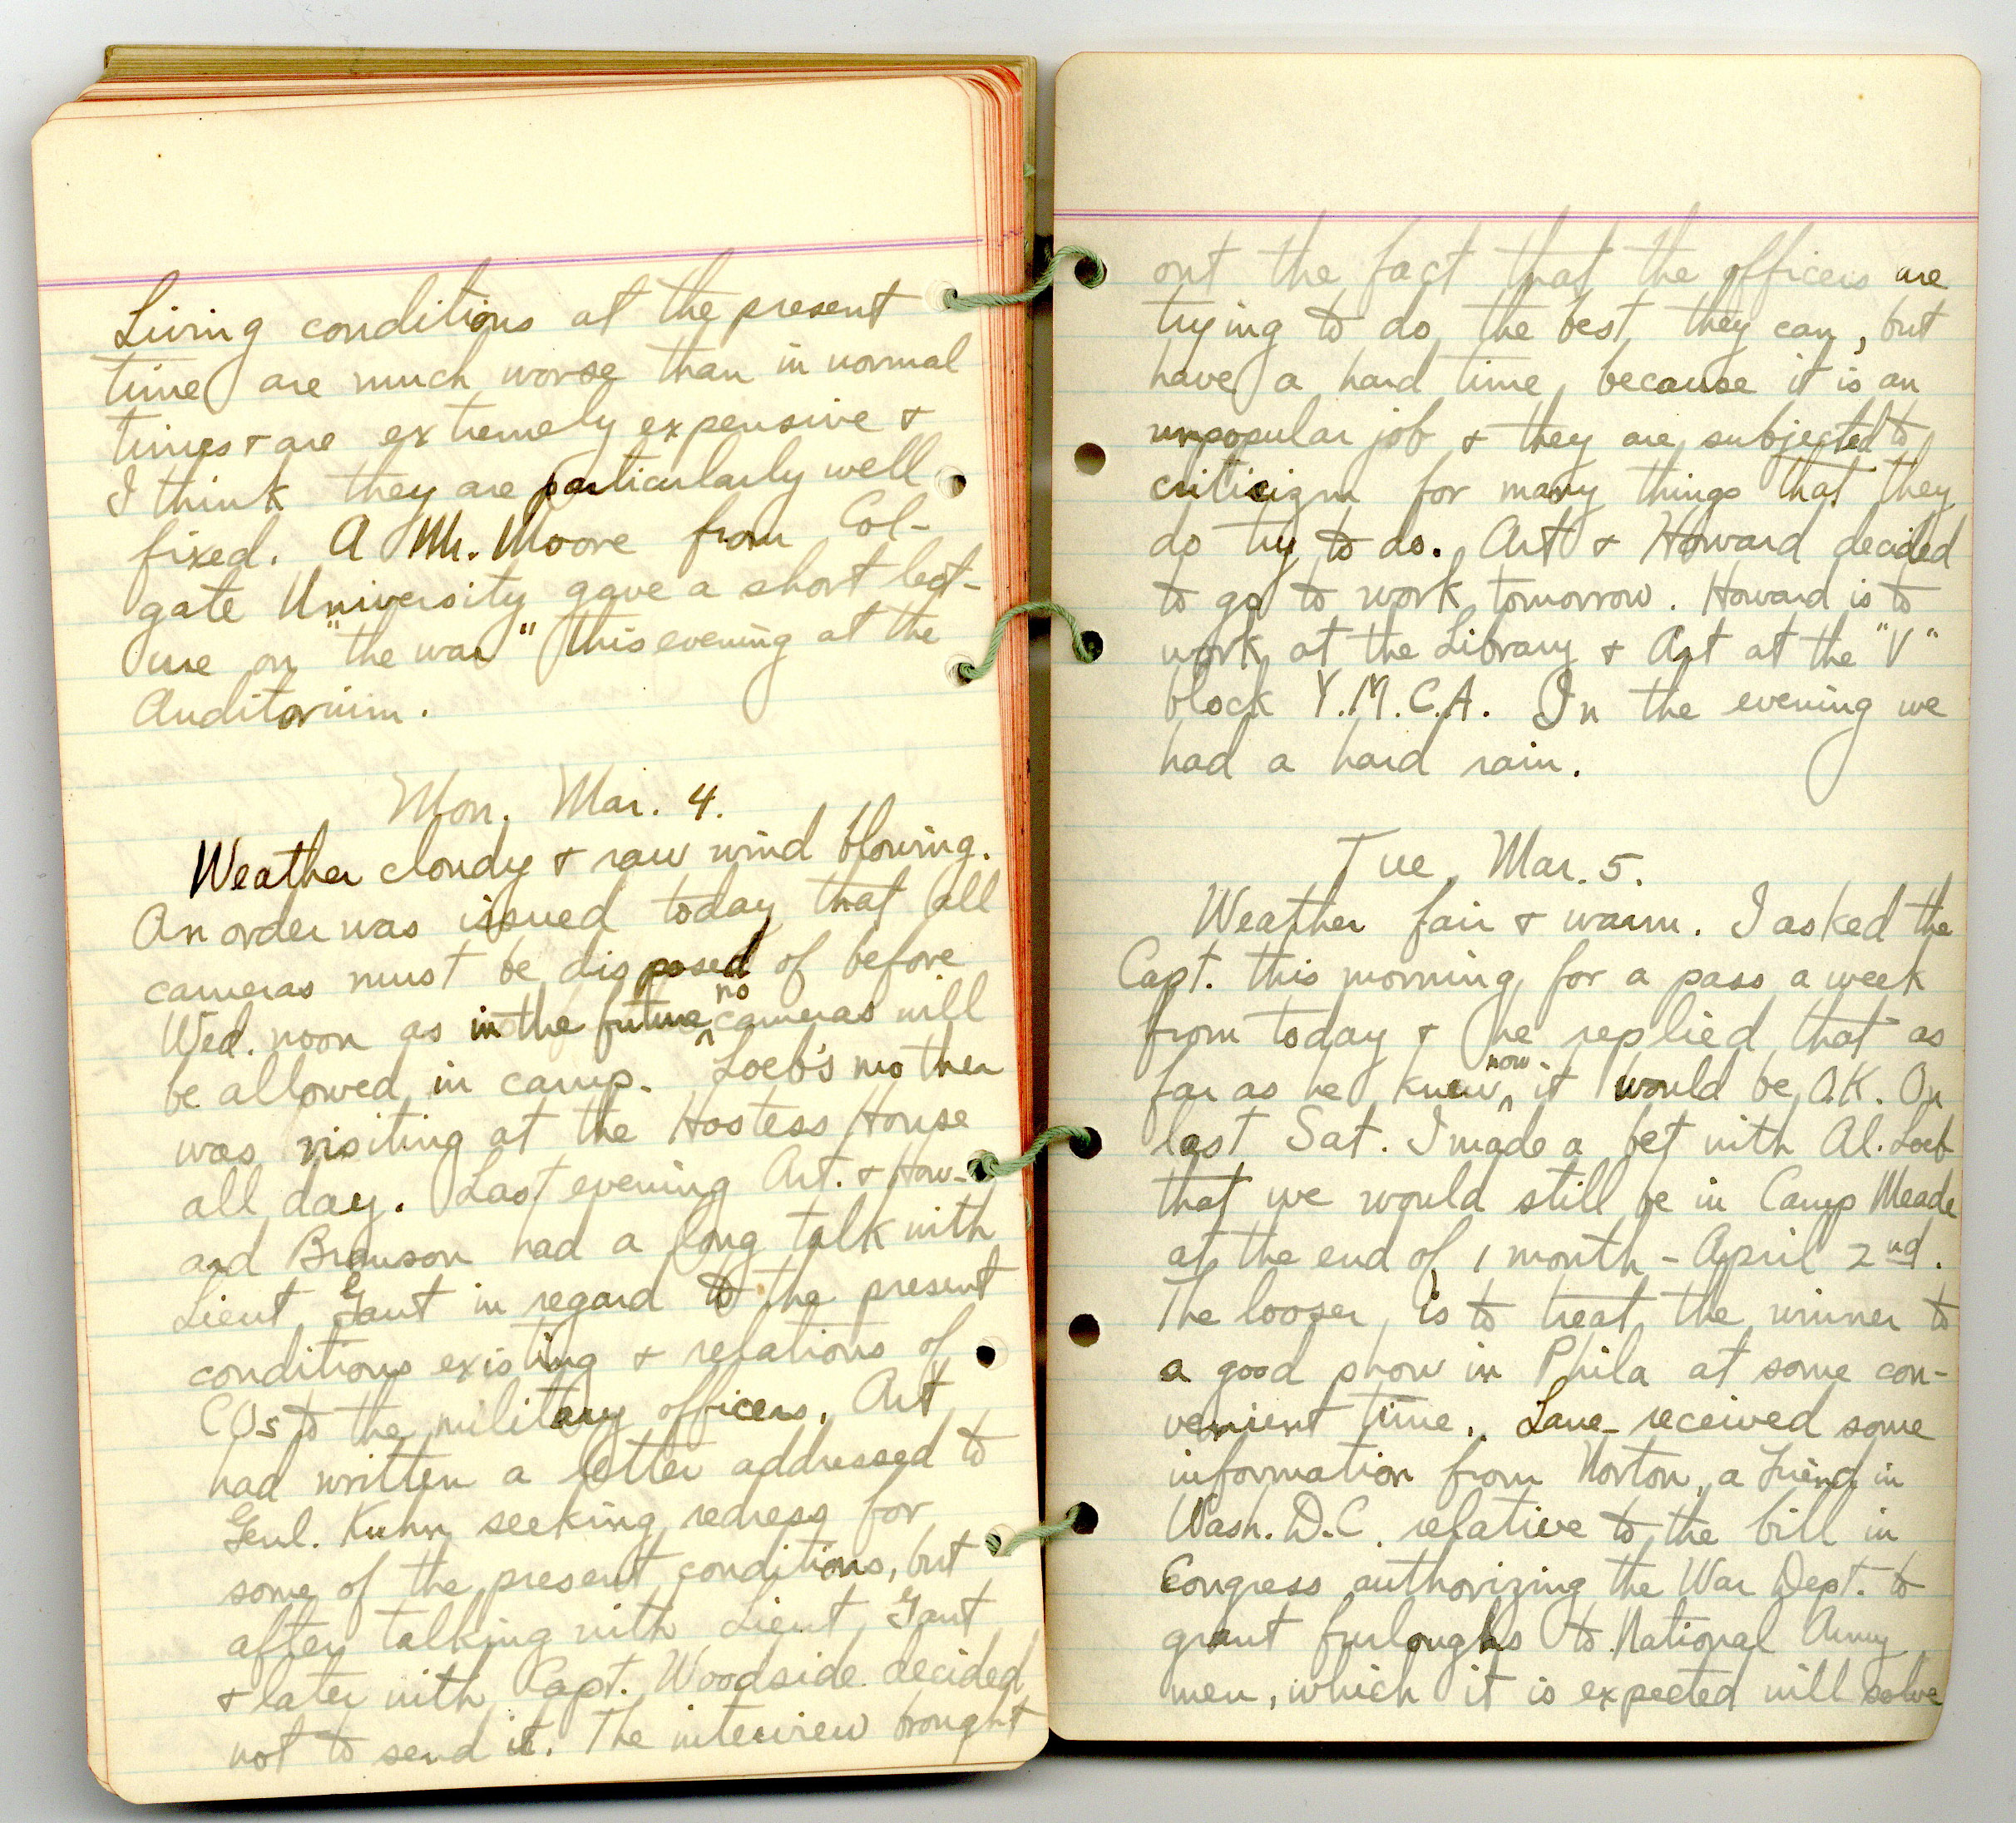 Living conditions at the present
time are much worse than in normal
times & are extremely expensive &
I think they are particularly well
fixed. A Mr. Moore from Col-
gate University gave a short lect-
ure on "the war" this evening at the
Auditorium.
Mon. Mar. 4.
Weather cloudy & raw wind blowing.
An order was issued today that all
cameras must be disposed of before
Wed. noon as in the future ^no cameras will
be allowed in camp. Loeb's mother
was visiting at the Hostess House
all day. Last evening Art. & How-
ard Branson had a long talk with
Lieut Gant in regard to the present
conditions existing & relations of
COs to the military officers. Art
had written a letter addressed to
Genl. Kuhn seeking redress for
some of the present conditions, but
after talking with Lieut Gant
& later with Capt. Woodside decided
not to send it. The interview brought
out the fact that the officers are
trying to do the best they can, but
have a hard time because it is an
unpopular job & they are subjected to
criticizm for many things that they
do try to do. Art & Howard decided
to go to work tomorrow. Howard is to
work at the Library & Art at the "V"
block Y.M.C.A. In the evening we
had a hard rain.
Tue. Mar. 5.
Weather fair & warm. I asked the
Capt. this morning for a pass a week
from today & he replied that as
far as he knew ^now it would be O.K. On
last Sat. I made a bet with Al. Loeb
that we would still be in Camp Meade
at the end of 1 month - April 2nd.
The looser is to treat the winner to
a good show in Phila at some con-
venient time. Lane received some
information from Norton, a Friend in
Wash. D.C. relative to the bill in
Congress authorizing the War Dept. to
grant furloughs to National Army
men, which it is expected will solve